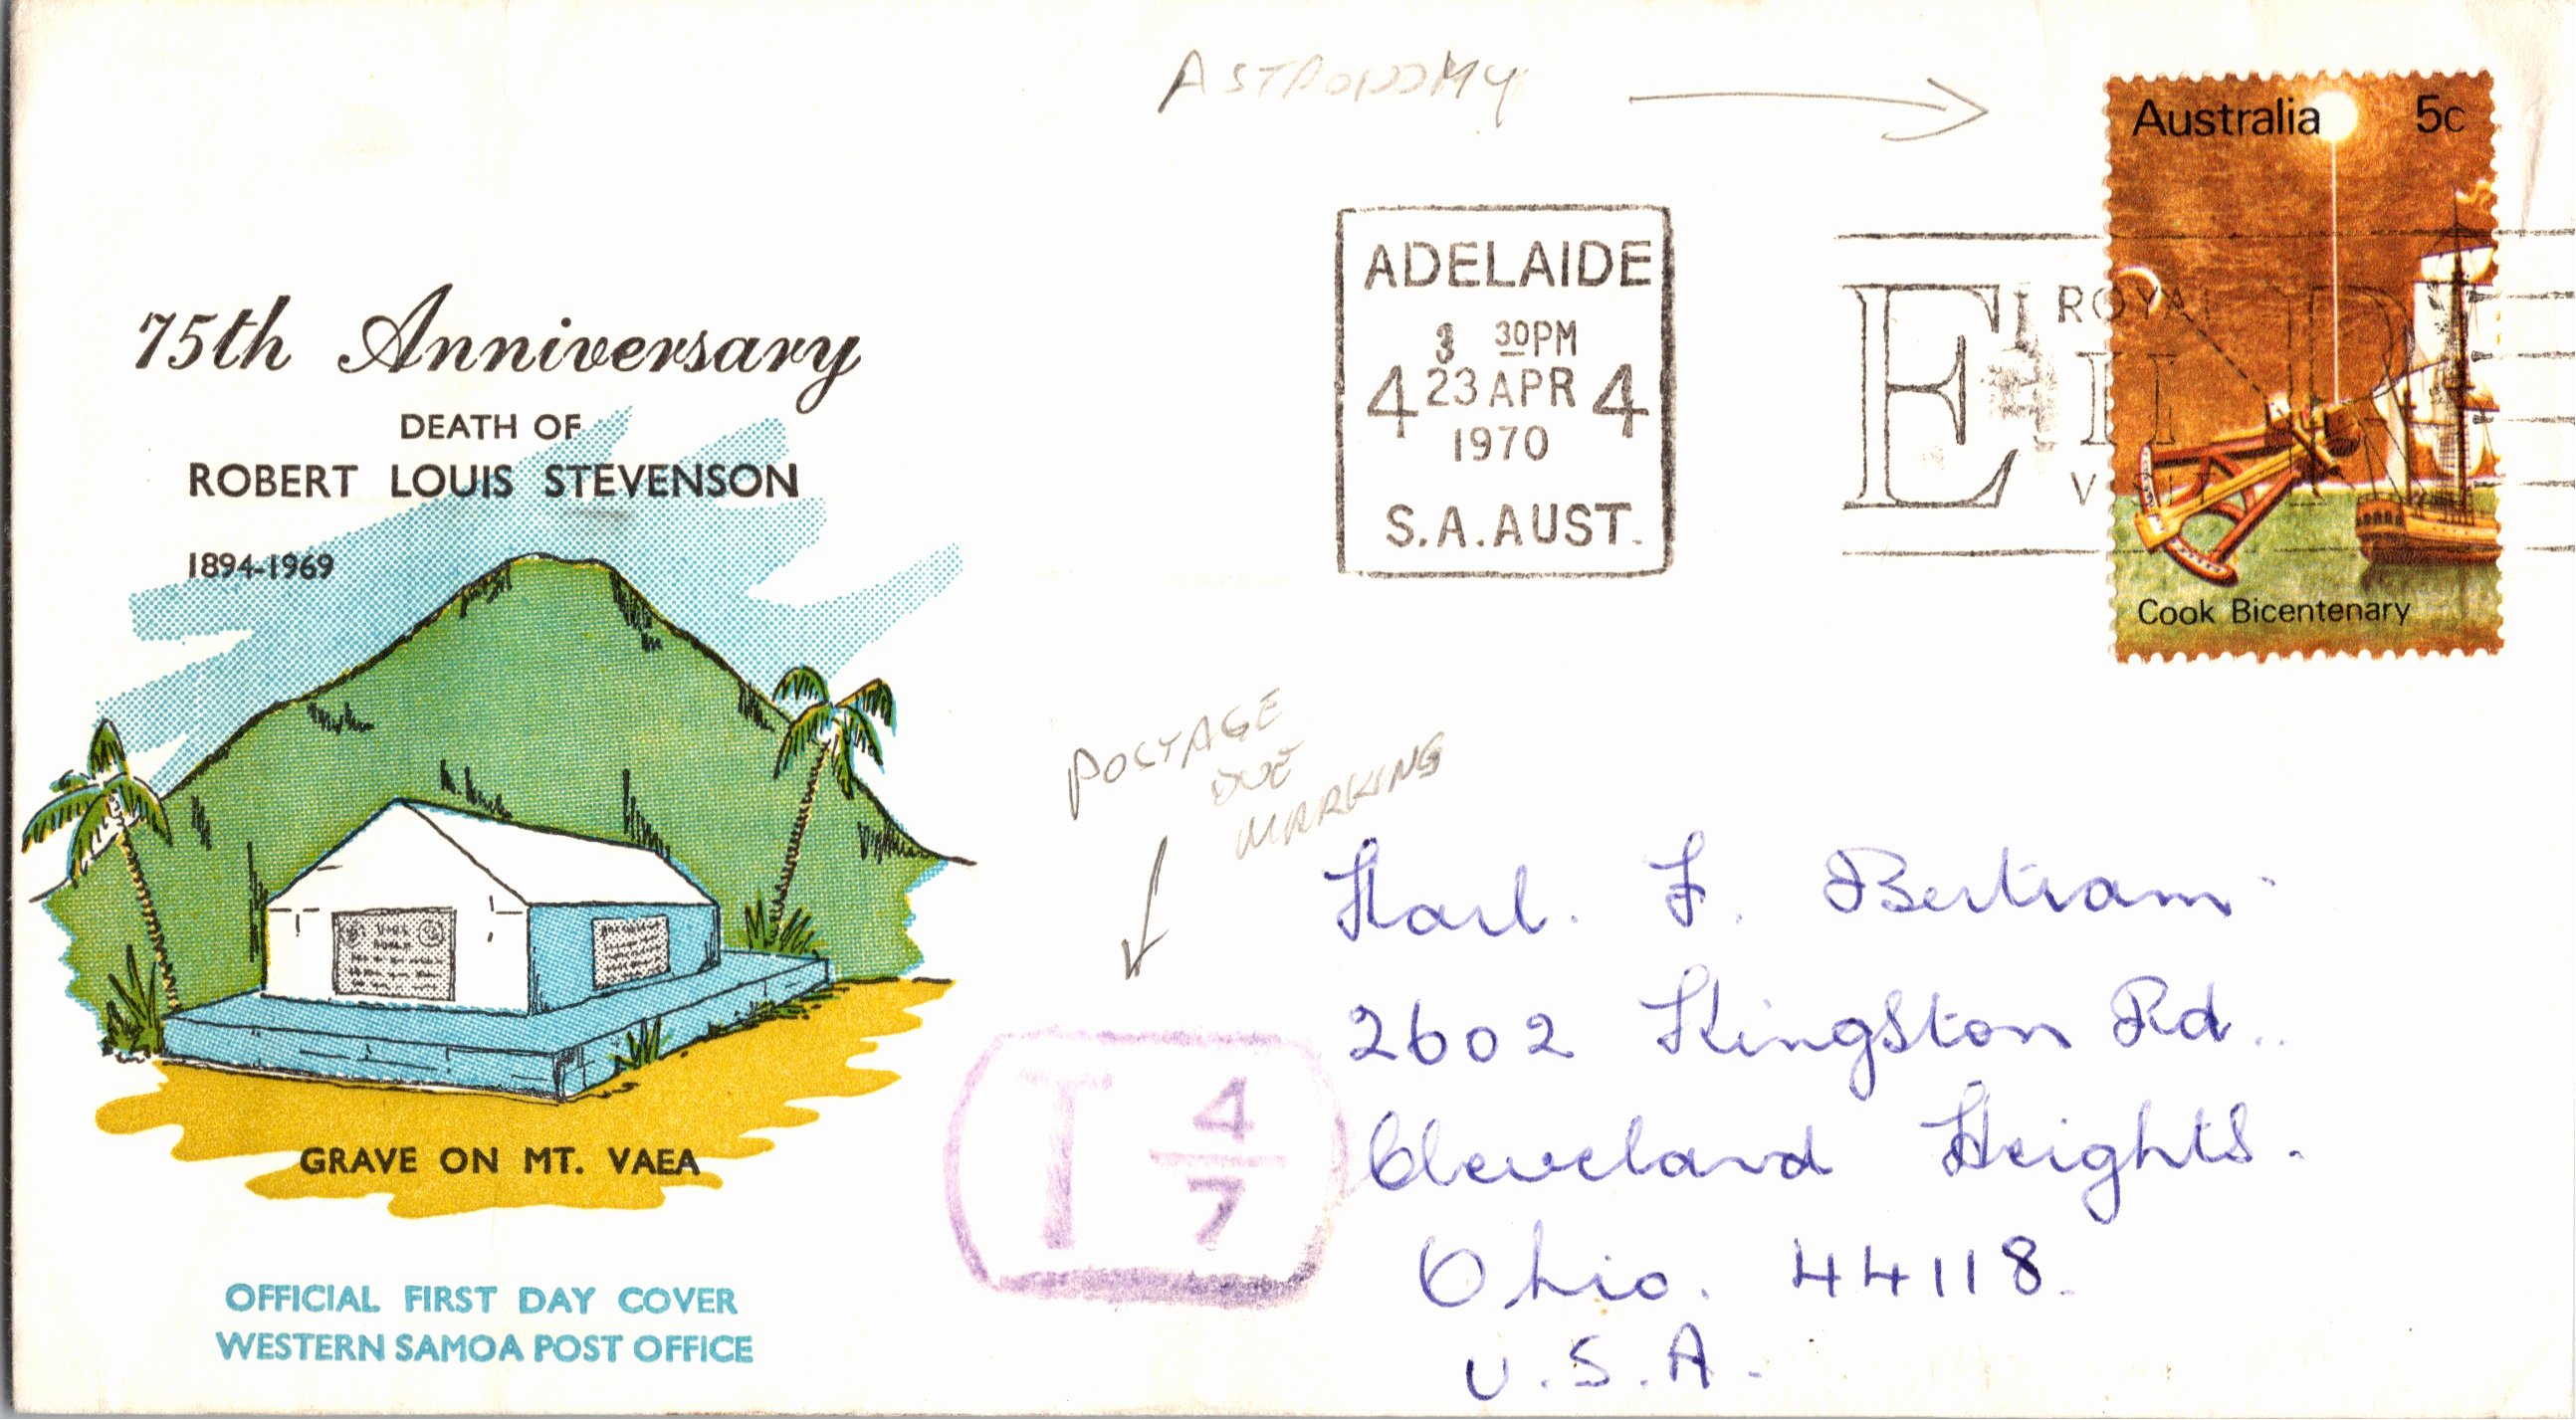 ASTRONOMY
Australia 5c
ADELAIDE
3 30PM
4 23 APR 4
1970
S.A. AUST.
E II R
ROYAL
VISIT
Cook Bicentenary
75th Anniversary
DEATH OF
ROBERT LOUIS STEVENSON
1894-1969
GRAVE ON MT. VAEA
OFFICIAL FIRST DAY COVER
WESTERN SAMOA POST OFFICE
POSTAGE
DUE
MARKING
T 4/7
Karl. F. Bertram
2602 Kingston Rd..
Cleveland Heights.
Ohio. 44118.
U.S.A.